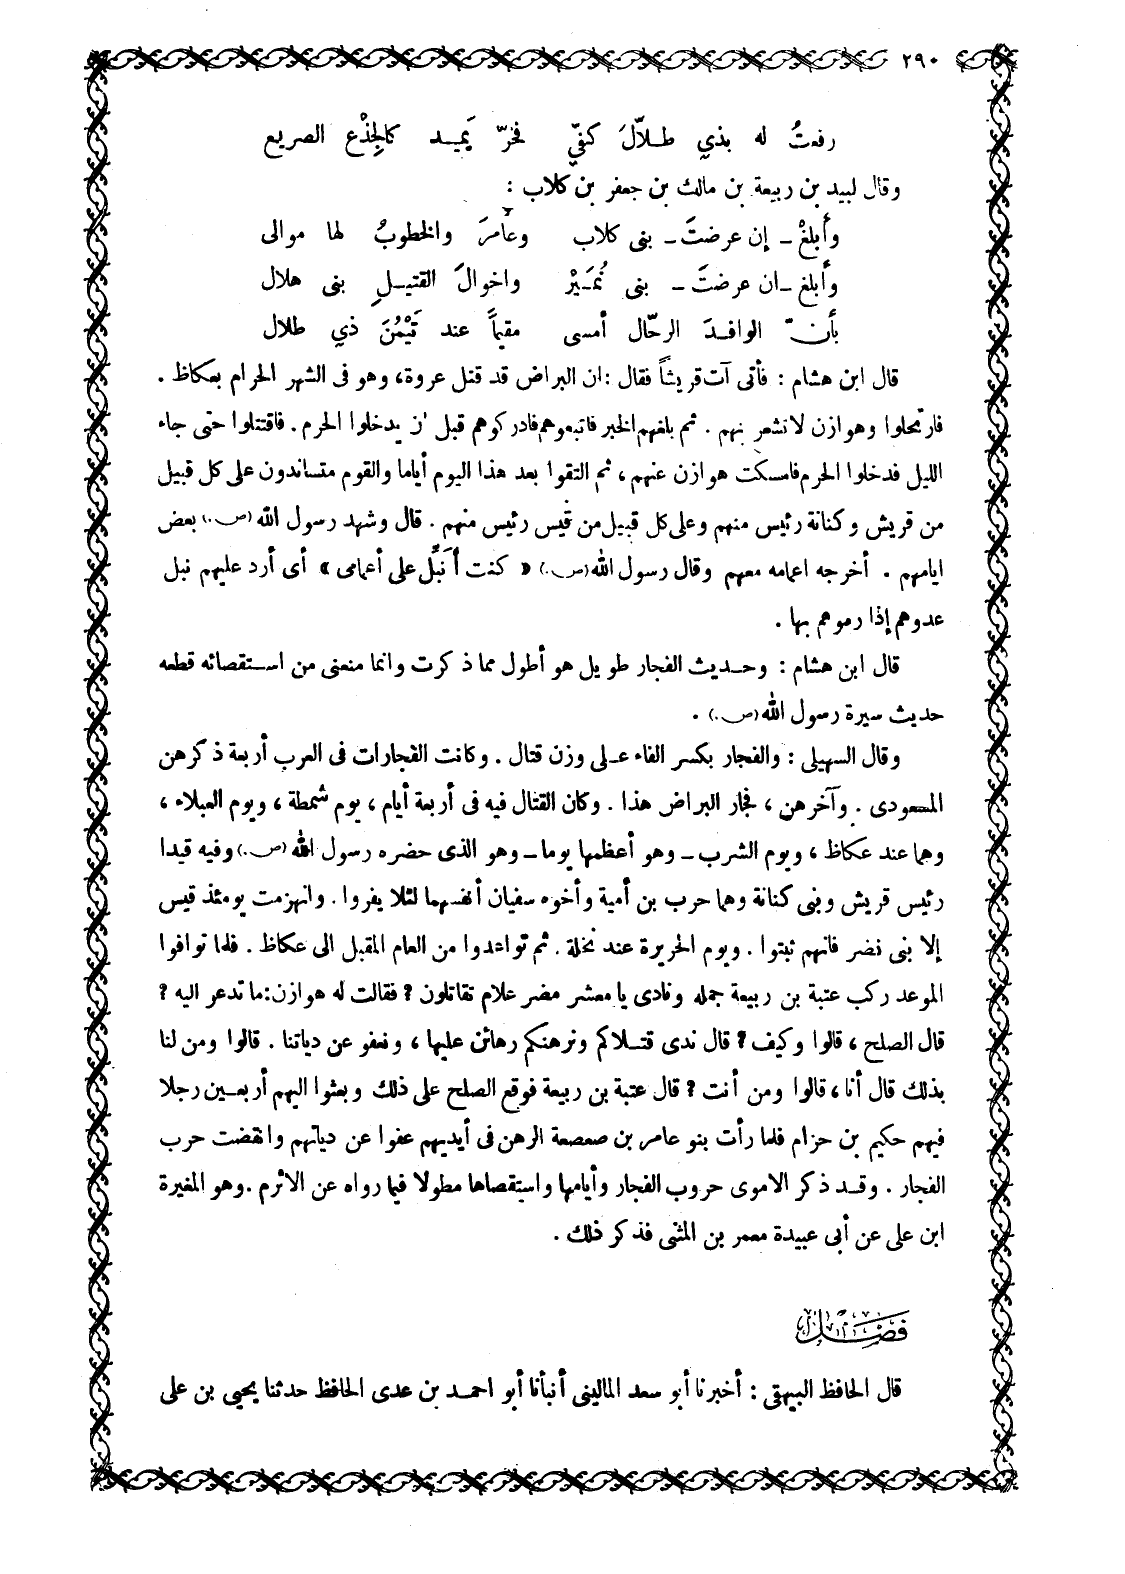 ٢٩٠
رفعتُ له بذي طلاّلَ كفيّ فخرّ يَميد كالجِذْع الصريع
وقال لبيد بن ربيعة بن مالك بن جعفر بن كلاب :
وأَبلغْ – إن عرضتَ – بنى كلاب وعامرَ والخطوبُ لها موالى
وأَبلغ – ان عرضتَ – بنى نُمَيْر واخوالَ القتيلِ بنى هلال
بأنّ الوافدَ الرحّال أمسى مقيماً عند تَيْمُنَ ذي طلال
قال ابن هشام : فأتى آت قريشاً فقال : ان البراض قد قتل عروة، وهو فى الشهر الحرام بعكاظ .
فارتحلوا وهوازن لا تشعر بهم . ثم بلغهم الخبر فاتبعوهم فادركوهم قبل ان يدخلوا الحرم . فاقتتلوا حتى جاء
الليل فدخلوا الحرم فامسكت هوازن عنهم ، ثم التقوا بعد هذا اليوم أياما والقوم متساندون على كل قبيل
من قريش وكنانة رئيس منهم وعلى كل قبيل من قيس رئيس منهم . قال وشهد رسول الله (ص.) بعض
ايامهم . أخرجه اعمامه معهم وقال رسول الله (ص.) « كنت أنَبِّل على أعمامى » أى أرد عليهم نبل
عدوهم إذا رموهم بها .
قال ابن هشام : وحديث الفجار طويل هو أطول مما ذكرت وانما منعنى من استقصائه قطعه
حديث سيرة رسول الله (ص.) .
وقال السهيلى : والفجار بكسر الفاء على وزن قتال . وكانت الفجارات فى العرب أربعة ذكرهن
المسعودى . وآخرهن ، فجار البراض هذا . وكان القتال فيه فى أربعة أيام ، يوم شمطة ، ويوم العبلاء ،
وهما عند عكاظ ، ويوم الشرب – وهو أعظمها يوما – وهو الذى حضره رسول الله (ص.) وفيه قيدا
رئيس قريش وبنى كنانة وهما حرب بن أمية وأخوه سفيان أنفسهما لئلا يفروا . وانهزمت يومئذ قيس
إلا بنى نضر فانهم ثبتوا . ويوم الحريرة عند نخلة . ثم تواعدوا من العام المقبل الى عكاظ . فلما توافوا
الموعد ركب عتبة بن ربيعة جمله ونادى يا معشر مضر علام تقاتلون ? فقالت له هوازن : ما تدعو اليه ?
قال الصلح ، قالوا وكيف ? قال ندى قتلاكم ونرهنكم رهائن عليها ، ونعفو عن دياتنا . قالوا ومن لنا
بذلك قال أنا ، قالوا ومن أنت ? قال عتبة بن ربيعة فوقع الصلح على ذلك وبعثوا اليهم أربعين رجلا
فيهم حكيم بن حزام فلما رأت بنو عامر بن صعصعة الرهن فى أيديهم عفوا عن دياتهم وانقضت حرب
الفجار . وقد ذكر الاموى حروب الفجار وأيامها واستقصاها مطولا فيما رواه عن الاثرم . وهو المغيرة
ابن على عن أبى عبيدة معمر بن المثنى فذكر ذلك .
فصل
قال الحافظ البيهقى : أخبرنا أبو سعد المالينى أنبأنا أبو احمد بن عدى الحافظ حدثنا يحيى بن على